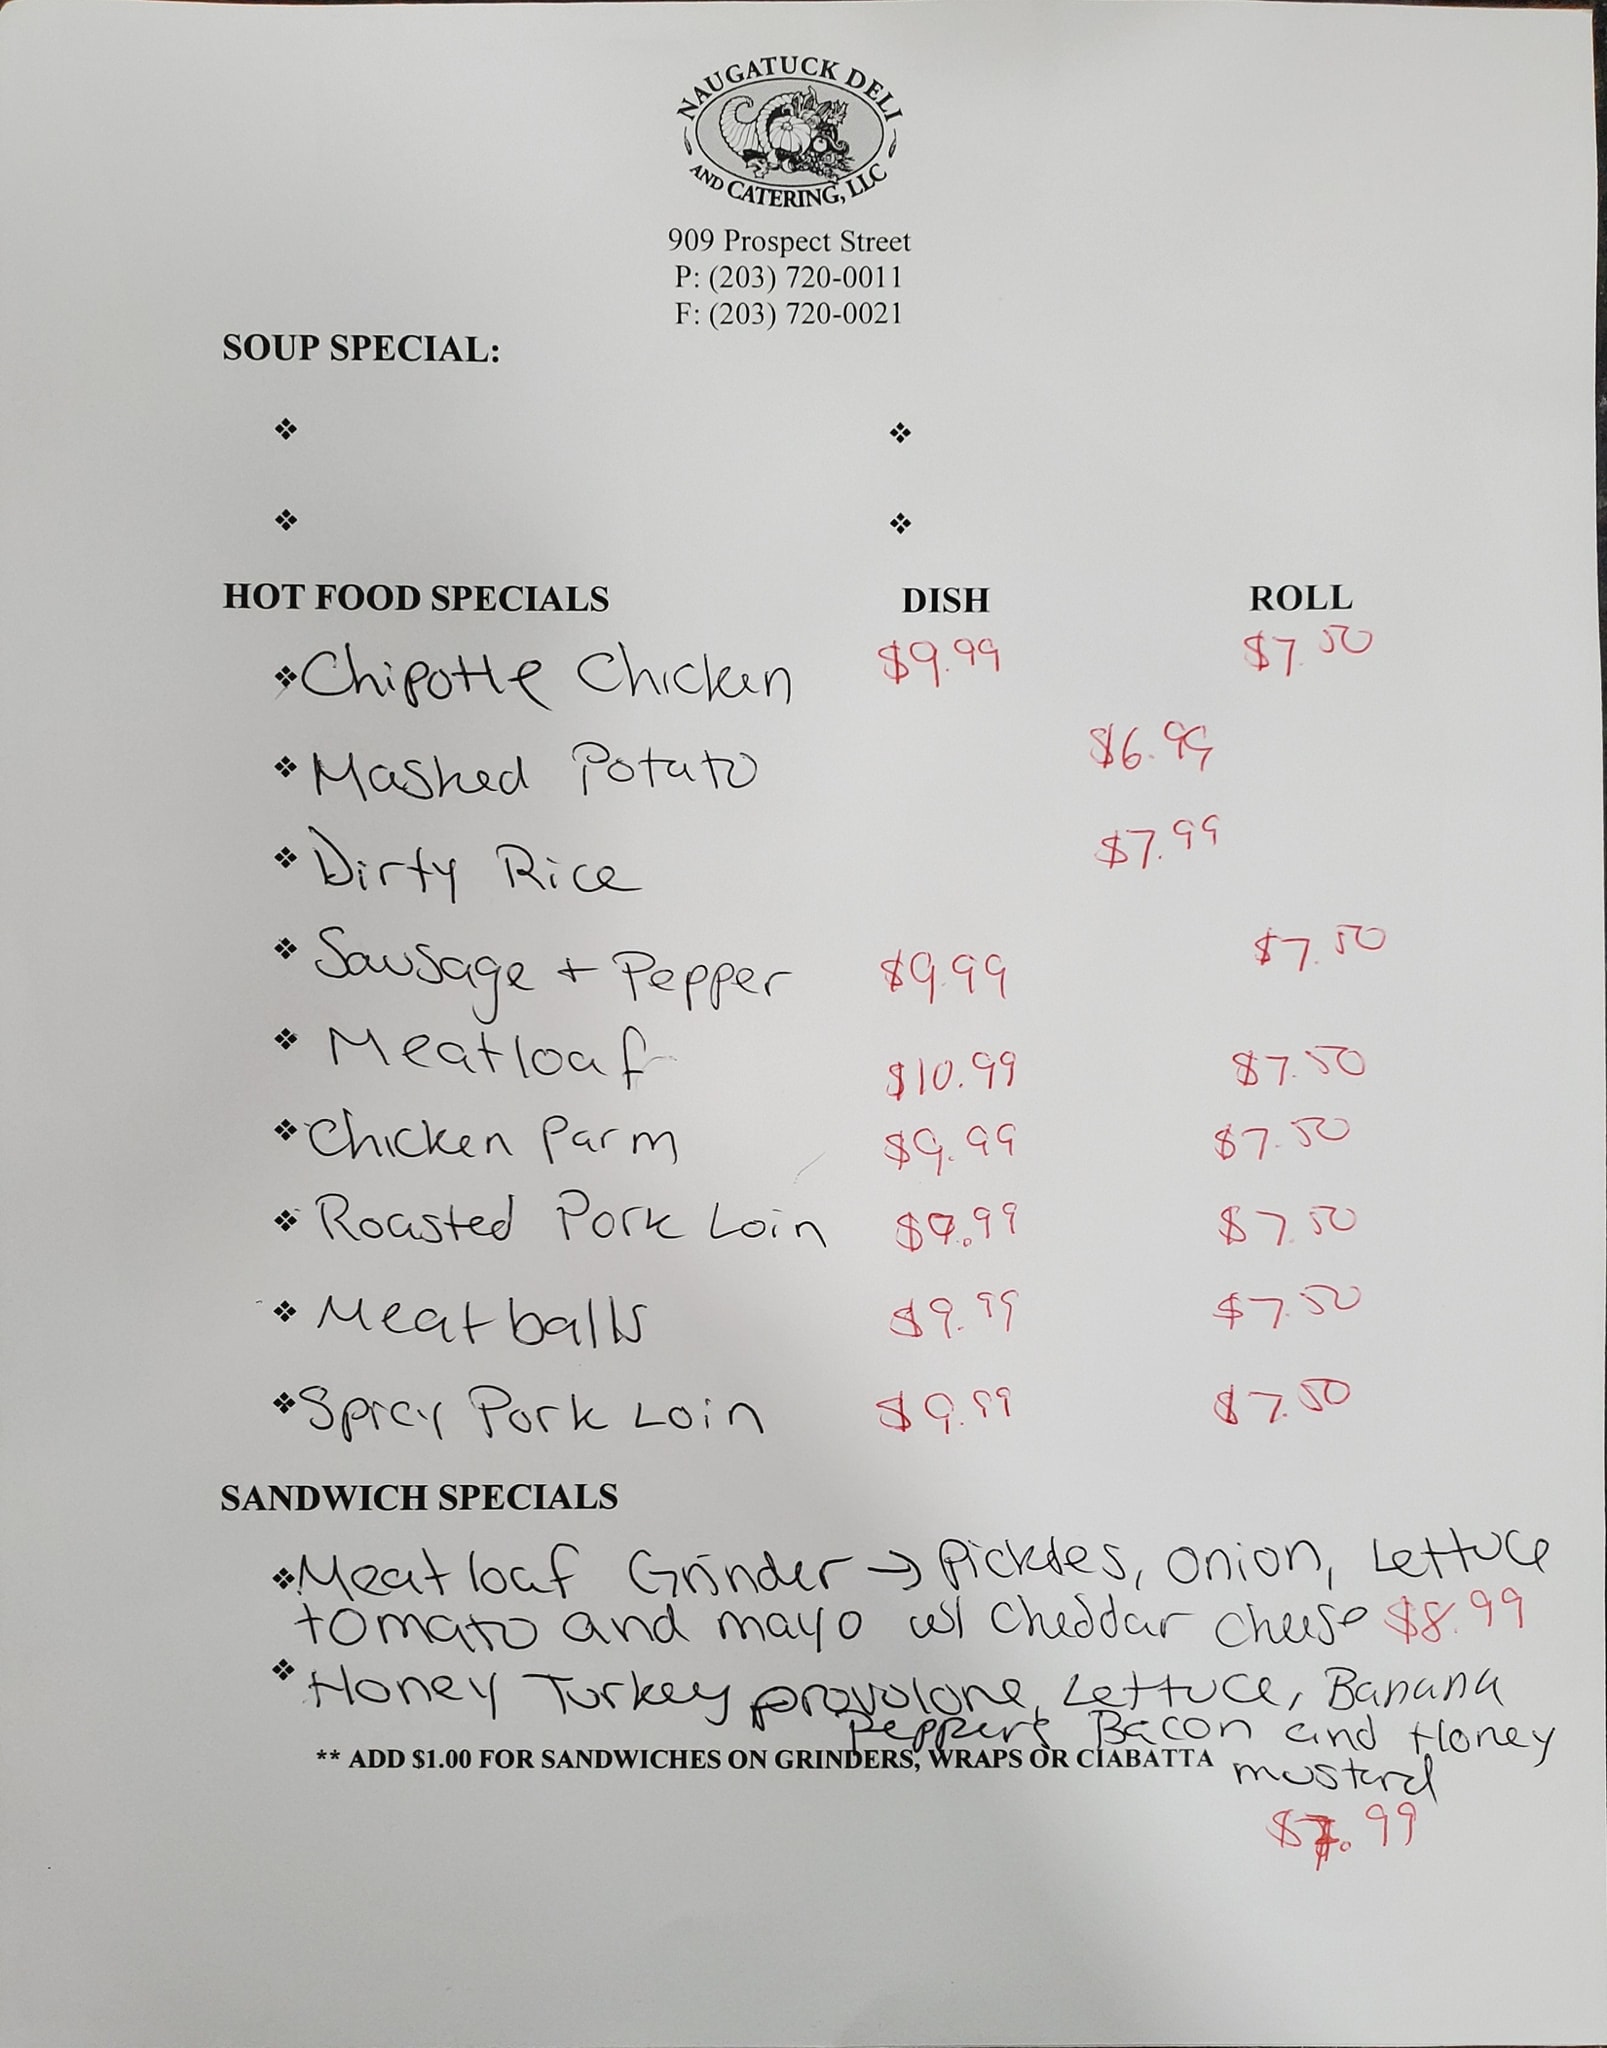 NAUGATUCK DELI
AND CATERING, LLC
909 Prospect Street
P: (203) 720-0011
F: (203) 720-0021
SOUP SPECIAL:
HOT FOOD SPECIALS DISH ROLL
Chipotle Chicken $9.99 $7.50
Mashed Potato $6.99
Dirty Rice $7.99
Sausage + Pepper $9.99 $7.50
Meatloaf $10.99 $7.50
Chicken Parm $9.99 $7.50
Roasted Pork Loin $9.99 $7.50
Meatballs $9.99 $7.50
Spicy Pork Loin $9.99 $7.50
SANDWICH SPECIALS
Meatloaf Grinder → Pickles, onion, Lettuce
tomato and mayo w/ cheddar cheese $8.99
Honey Turkey provolone, Lettuce, Banana
peppers Bacon and Honey
** ADD $1.00 FOR SANDWICHES ON GRINDERS, WRAPS OR CIABATTA mustard
$7.99